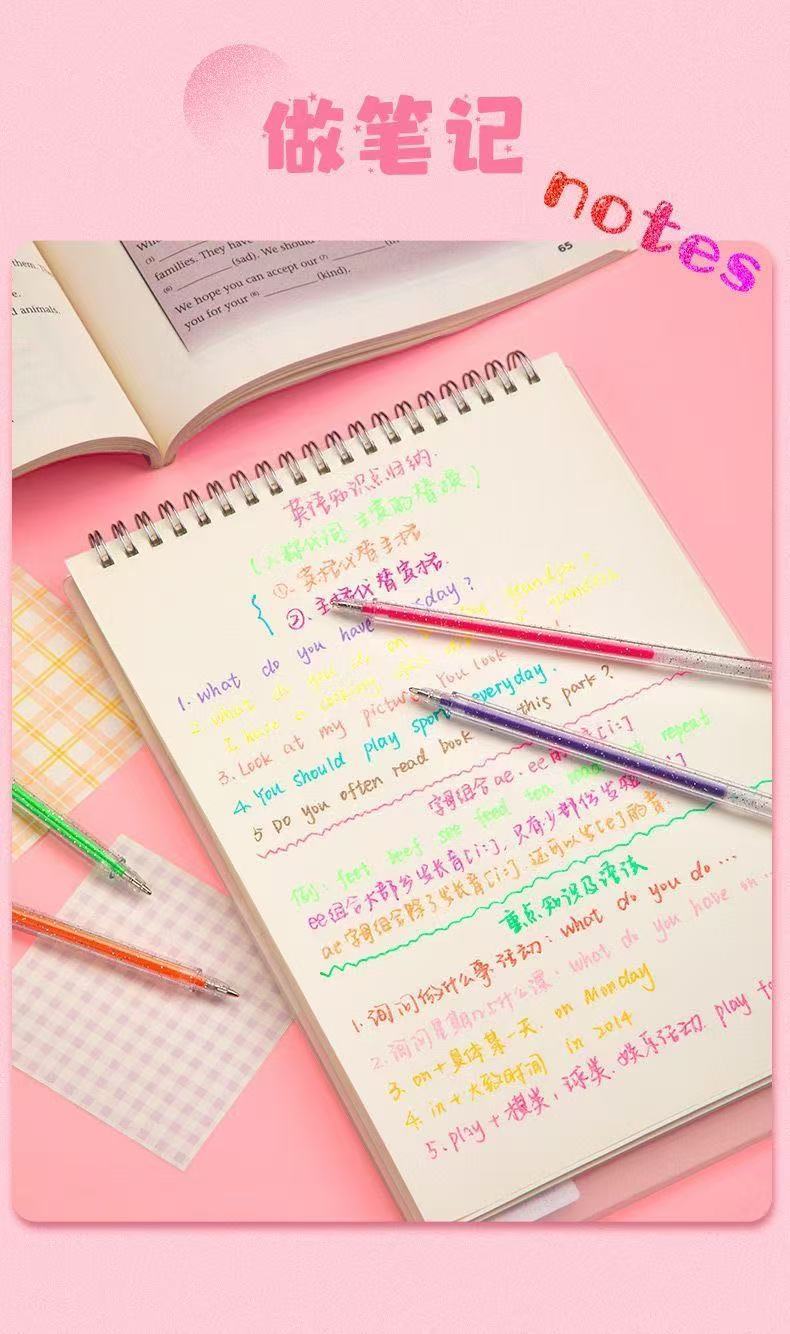 做笔记
notes
them. The
e.
d animals.
families. They have
(5) (sad). We should
(6)
We hope you can accept our (7)
you for your (8) (kind).
65
英语知识点归纳.
(人称代词 主宾的替换)
①. 宾格代替主格
②. 主格代替宾格.
1. What do you have sday?
2. What do you do on grandpa?
I have a cooking
3. Look at my pictur You look
4. You should play spor everyday.
5 Do you often read book this park?
字母组合ae. ee [i:]
例: feet beef see feed tea repeat
ee组合大部分发长音[i:], 只有少部份发短
ae字母组合除了发长音[i:]. 还可以发[e]的音.
重点知识及语法
1. 询问你什么事活动: what do you do ...
2. 询问星期几上什么课: what do you have on ...
3. on+具体某一天. on Monday
4. in+大致时间 in 2014
5. play+棋类, 球类. 娱乐活动. play